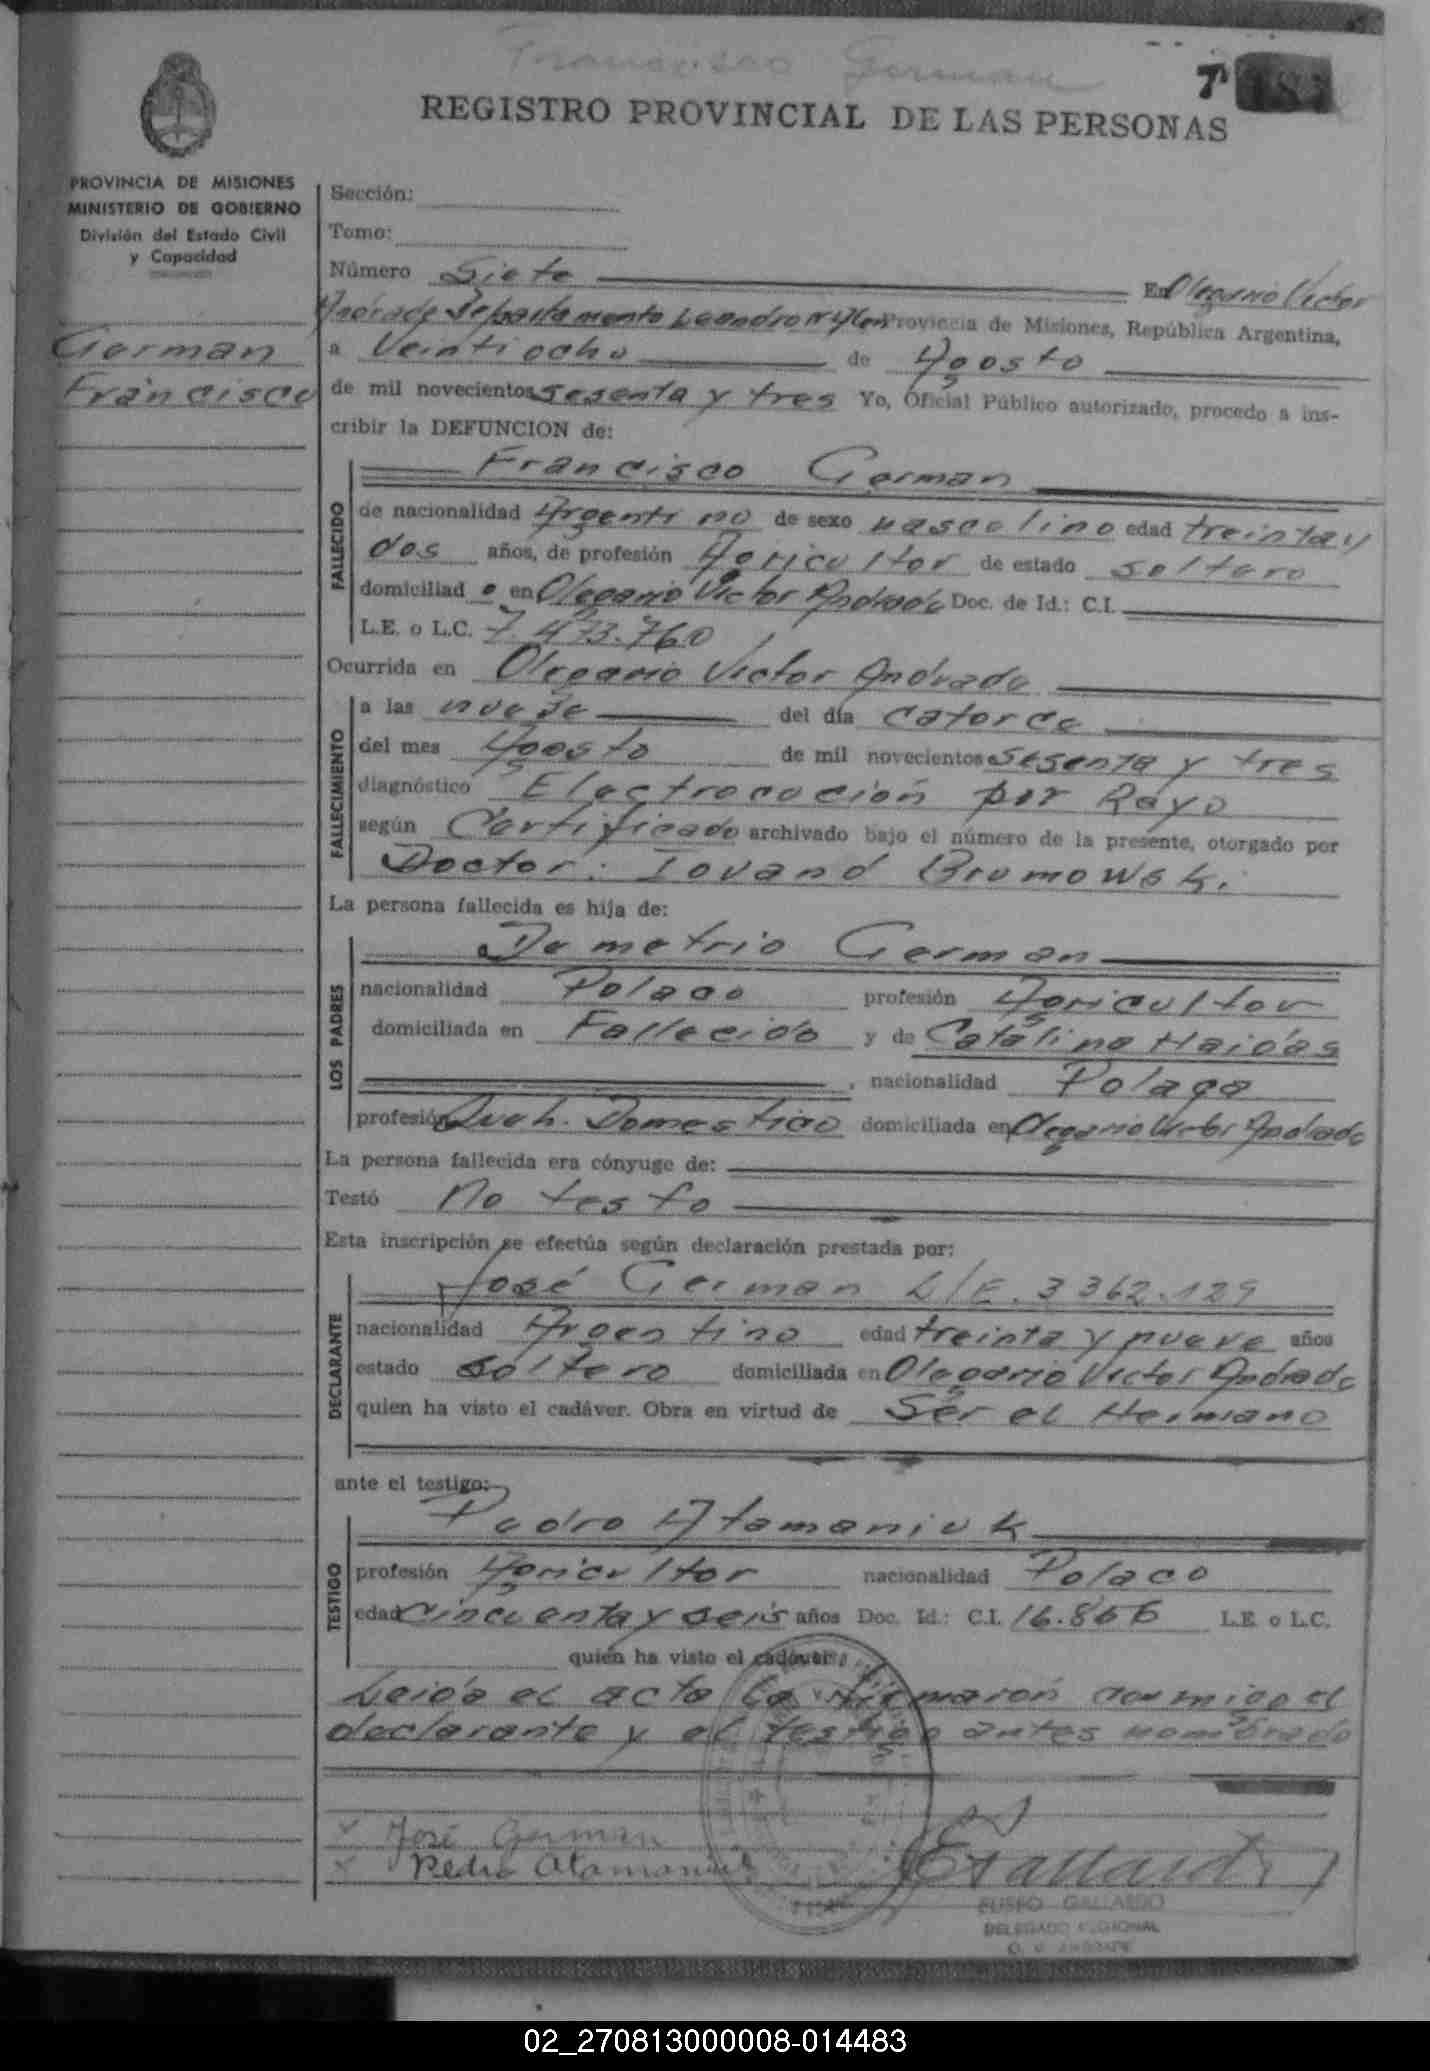 Francisco German
7
REGISTRO PROVINCIAL DE LAS PERSONAS
PROVINCIA DE MISIONES
MINISTERIO DE GOBIERNO
División del Estado Civil
y Capacidad
German
Francisco
Sección:
Tomo:
Número Siete En Olegario Victor
Andrade Departamento Leandro N Alem Provincia de Misiones, República Argentina,
a Veintiocho de Agosto
de mil novecientos sesenta y tres Yo, Oficial Público autorizado, procedo a ins-
cribir la DEFUNCION de:
Francisco German
FALLECIDO
de nacionalidad Argentino de sexo masculino edad treinta y
dos años, de profesión Agricultor de estado soltero
domiciliad o en Olegario Victor Andrade Doc. de Id.: C.I.
L.E. o L.C. 7.473.760
Ocurrida en Olegario Victor Andrade
FALLECIMIENTO
a las nueve del día catorce
del mes Agosto de mil novecientos sesenta y tres
diagnóstico Electrocución por Rayo
según Certificado archivado bajo el número de la presente, otorgado por
Doctor: Iovand Bromowski
La persona fallecida es hija de:
LOS PADRES
Demetrio German
nacionalidad Polaco profesión Agricultor
domiciliada en Fallecido y de Catalina Haidas
, nacionalidad Polaca
profesión Queh. Domestico domiciliada en Olegario Victor Andrade
La persona fallecida era cónyuge de:
Testó No testo
Esta inscripción se efectúa según declaración prestada por:
DECLARANTE
José German L/E. 3362.129
nacionalidad Argentino edad treinta y nueve años
estado soltero domiciliada en Olegario Victor Andrade
quien ha visto el cadáver. Obra en virtud de Ser el Hermano
ante el testigo:
TESTIGO
Pedro Atamaniuk
profesión Agricultor nacionalidad Polaco
edad cincuenta y seis años Doc. Id.: C.I. 16.866 L.E. o L.C.
quién ha visto el cadáver
Leida el acta la firmaron conmigo el
declarante y el testigo antes nombrado
x José German
x Pedro Atamaniuk
EUSEO GALLARDO
DELEGADO REGIONAL
O. V. ANDRADE
02_270813000008-014483